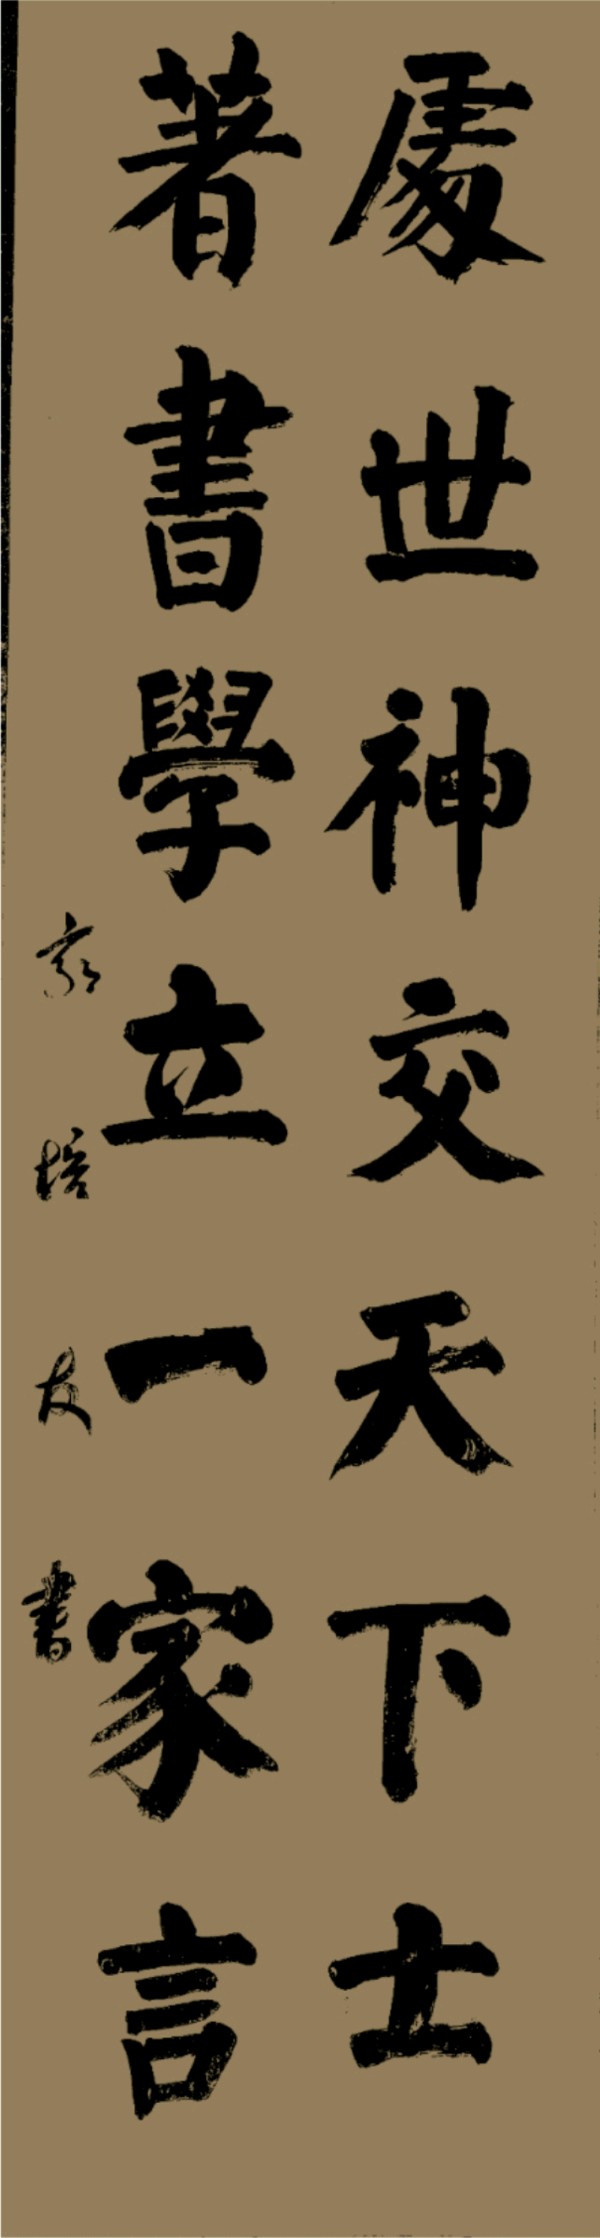 處世神交天下士
著書學立一家言
郭培友書